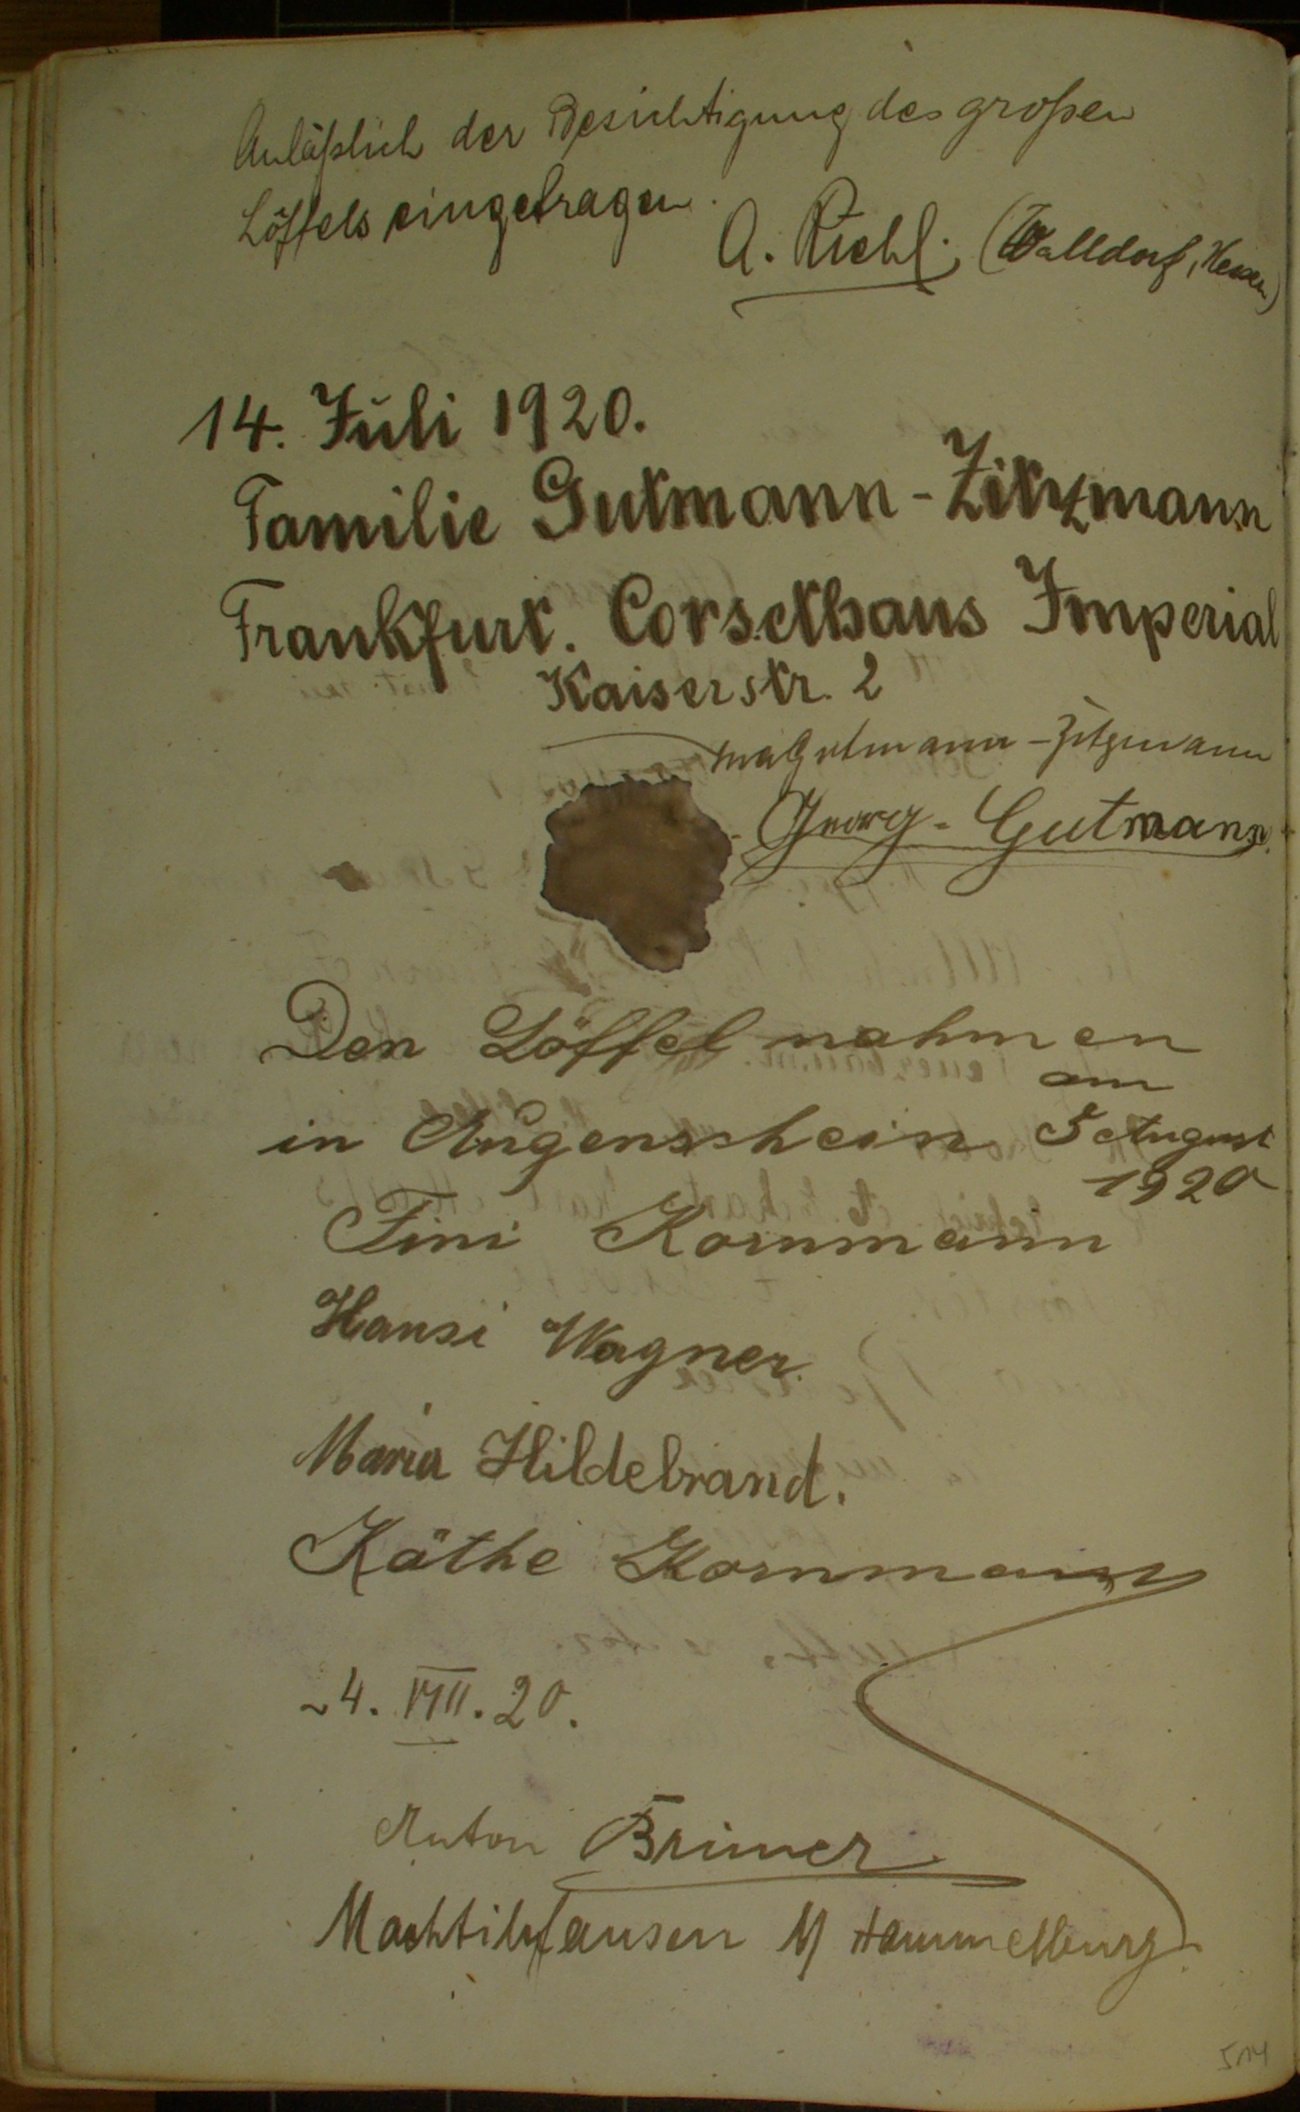 Anläßlich der Besichtigung des großen
Löffels eingetragen.
A. Riehl. (Walldorf, Hessen)
14. Juli 1920.
Familie Gutmann-Zitzmann
Frankfurt. Corsethaus Imperial
Kaiserstr. 2
Gutmann-Zitzmann
Georg Gutmann.
Den Löffel nahmen
am
in Augenschein 5 August
1920
Fini Kornmann
Hansi Wagner.
Maria Hildebrand.
Käthe Kornmann
4. VIII. 20.
Anton
Machtilshausen Hammelburg.
514